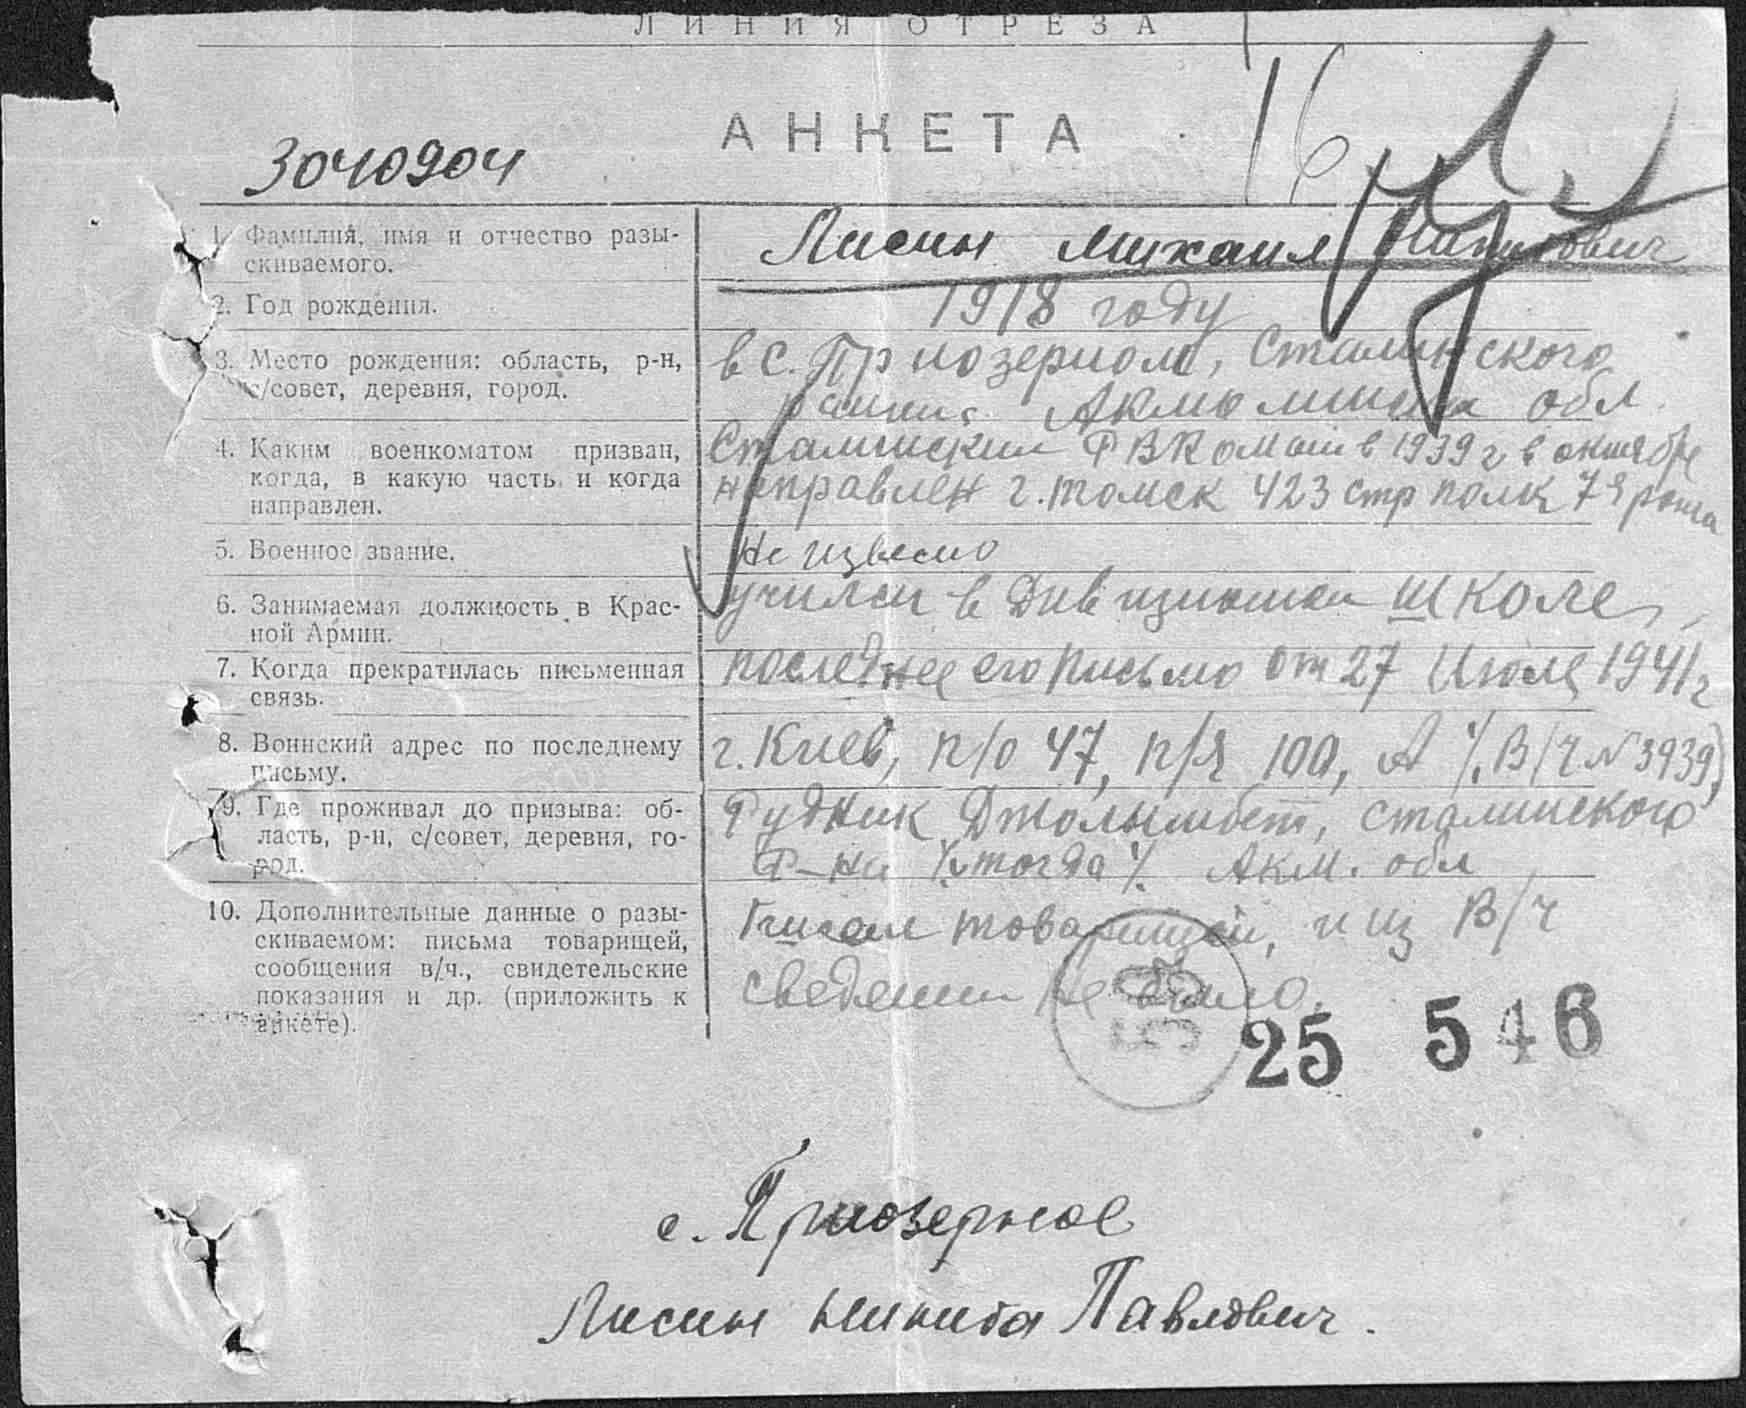 ЛИНИЯ ОТРЕЗА
АНКЕТА
16
3040904
1. Фамилия, имя и отчество разы-
скиваемого.
Лисин Михаил Никитович
2. Год рождения.
1918 году
3. Место рождения: область, р-н,
с/совет, деревня, город.
в с. Приозерном, Сталинского
района Акмолинска обл
4. Каким военкоматом призван,
когда, в какую часть и когда
направлен.
Сталинским РВКоматом в 1939 г в октябре
направлен г. томск 423 стр полк 7я рота
5. Военное звание.
Не извесно
6. Занимаемая должность в Крас-
ной Армии.
учился в Дивизионной школе,
7. Когда прекратилась письменная
связь.
последнее его письмо от 27 Июля 1941 г
8. Воинский адрес по последнему
письму.
г. Киев, п/о 47, п/я 100, А /. В/ч № 3939)
9. Где проживал до призыва: об-
ласть, р-н, с/совет, деревня, го-
род.
Рудник Джолымбет, Сталинского
Р-на /.тогда/. Акм. обл
10. Дополнительные данные о разы-
скиваемом: письма товарищей,
сообщения в/ч., свидетельские
показания и др. (приложить к
анкете).
Писем товарищей, и из В/ч
сведении не было.
25 546
с. Приозерное
Лисин Никита Павлович.